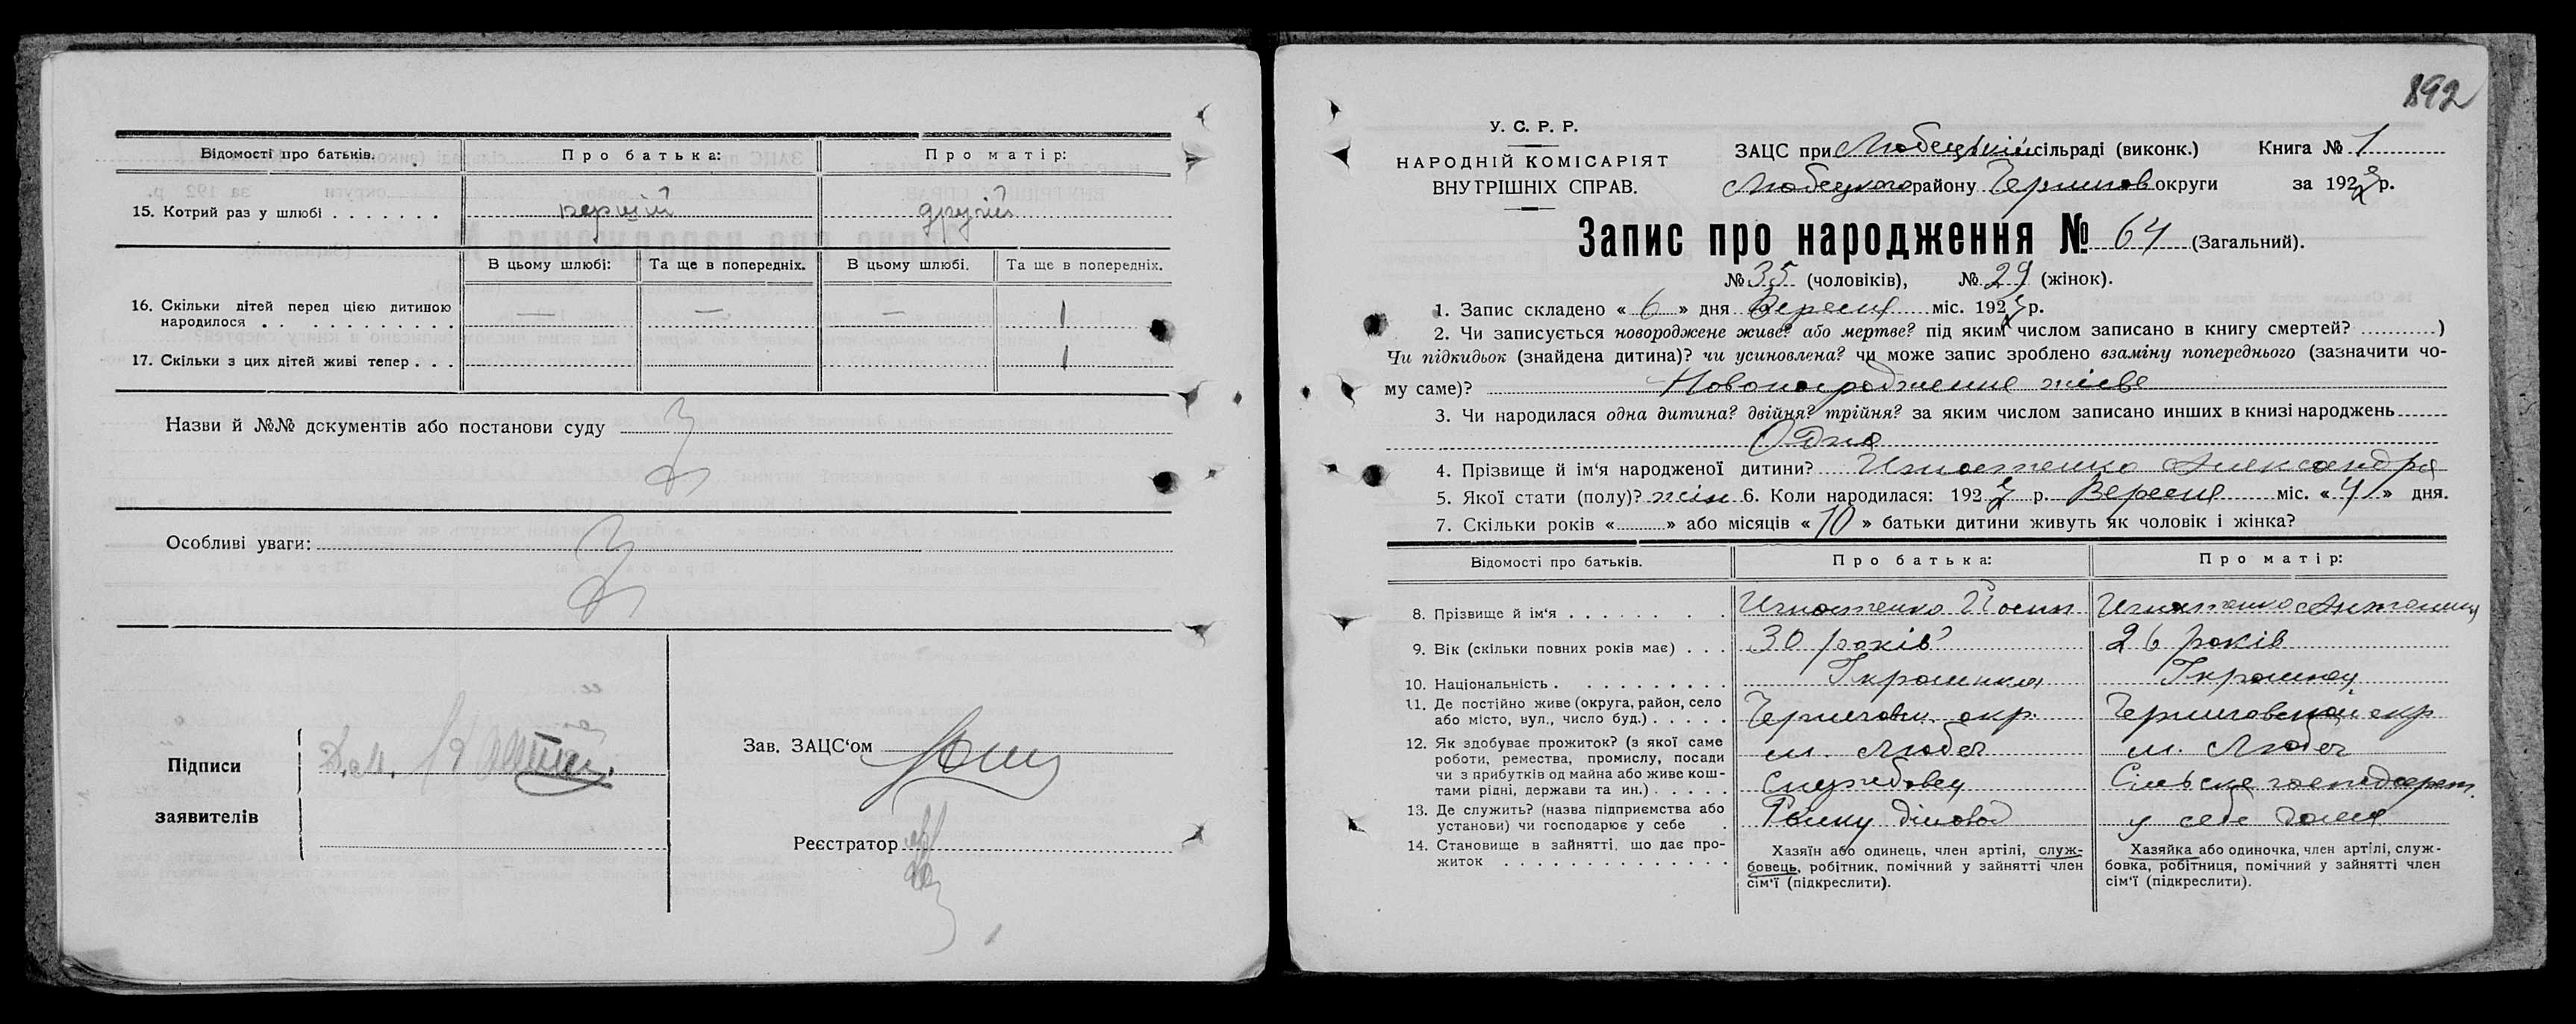 Відомості про батьків. Про батька: Про матір:
15. Котрий раз у шлюбі . . . . . . . перший другій
В цьому шлюбі: Та ще в попередніх. В цьому шлюбі. Та ще в попередніх.
16. Скільки дітей перед цією дитиною
народилося . . . . . . . . . . . — — — 1
17. Скільки з цих дітей живі тепер . . . 1
Назви й №№ документів або постанови суду
Особливі уваги:
Підписи
заявителів
Зав. ЗАЦС'ом
Реєстратор
892
У. С. Р. Р.
НАРОДНІЙ КОМІСАРІЯТ
ВНУТРІШНІХ СПРАВ.
ЗАЦС при Любецькій сільраді (виконк.) Книга № 1
Любецкого району Чернигов округи за 192 р.
Запис про народження № 64 (Загальний).
№ 35 (чоловіків), № 29 (жінок).
1. Запис складено « 6 » дня Вересня міс. 192 р.
2. Чи записується новороджене живе? або мертве? під яким числом записано в книгу смертей? )
Чи підкидьок (знайдена дитина)? чи усиновлена? чи може запис зроблено взаміну попереднього (зазначити чо-
му саме)? живе
3. Чи народилася одна дитина? двійня? трійня? за яким числом записано инших в книзі народжень
Одна
4. Прізвище й ім'я народженої дитини? Игнатенко Александра
5. Якої стати (полу)? жін 6. Коли народилася: 192 р. Вересня міс. « 4 » дня.
7. Скільки років « » або місяців « 10 » батьки дитини живуть як чоловік і жінка?
Відомості про батьків. Про батька: Про матір:
8. Прізвище й ім'я . . . . . . . . Игнатенко Йосип Игнатенко Антонина
9. Вік (скільки повних років має) . . . 30 років 26 років
10. Національність . . . . . . . . . .
11. Де постійно живе (округа, район, село
або місто, вул., число буд.) . . . . . Чернигов. окр. Черниговской окр
12. Як здобуває прожиток? (з якої саме м. Любеч м. Любеч
роботи, ремества, промислу, посади
чи з прибутків од майна або живе кош-
тами рідні, держави та ин.) . . . . . Службовец Сільске господарст.
13. Де служить? (назва підприємства або
установи) чи господарює у себе . діловод у себе дома
14. Становище в зайнятті, що дає про-
житок . . . . . . . . . . . . . . .
Хазяїн або одинець, член артілі, служ-
бовець, робітник, помічний у зайнятті член
сім'ї (підкреслити).
Хазяйка або одиночка, член артілі, служ-
бовка, робітниця, помічний у зайнятті член
сім'ї (підкреслити).